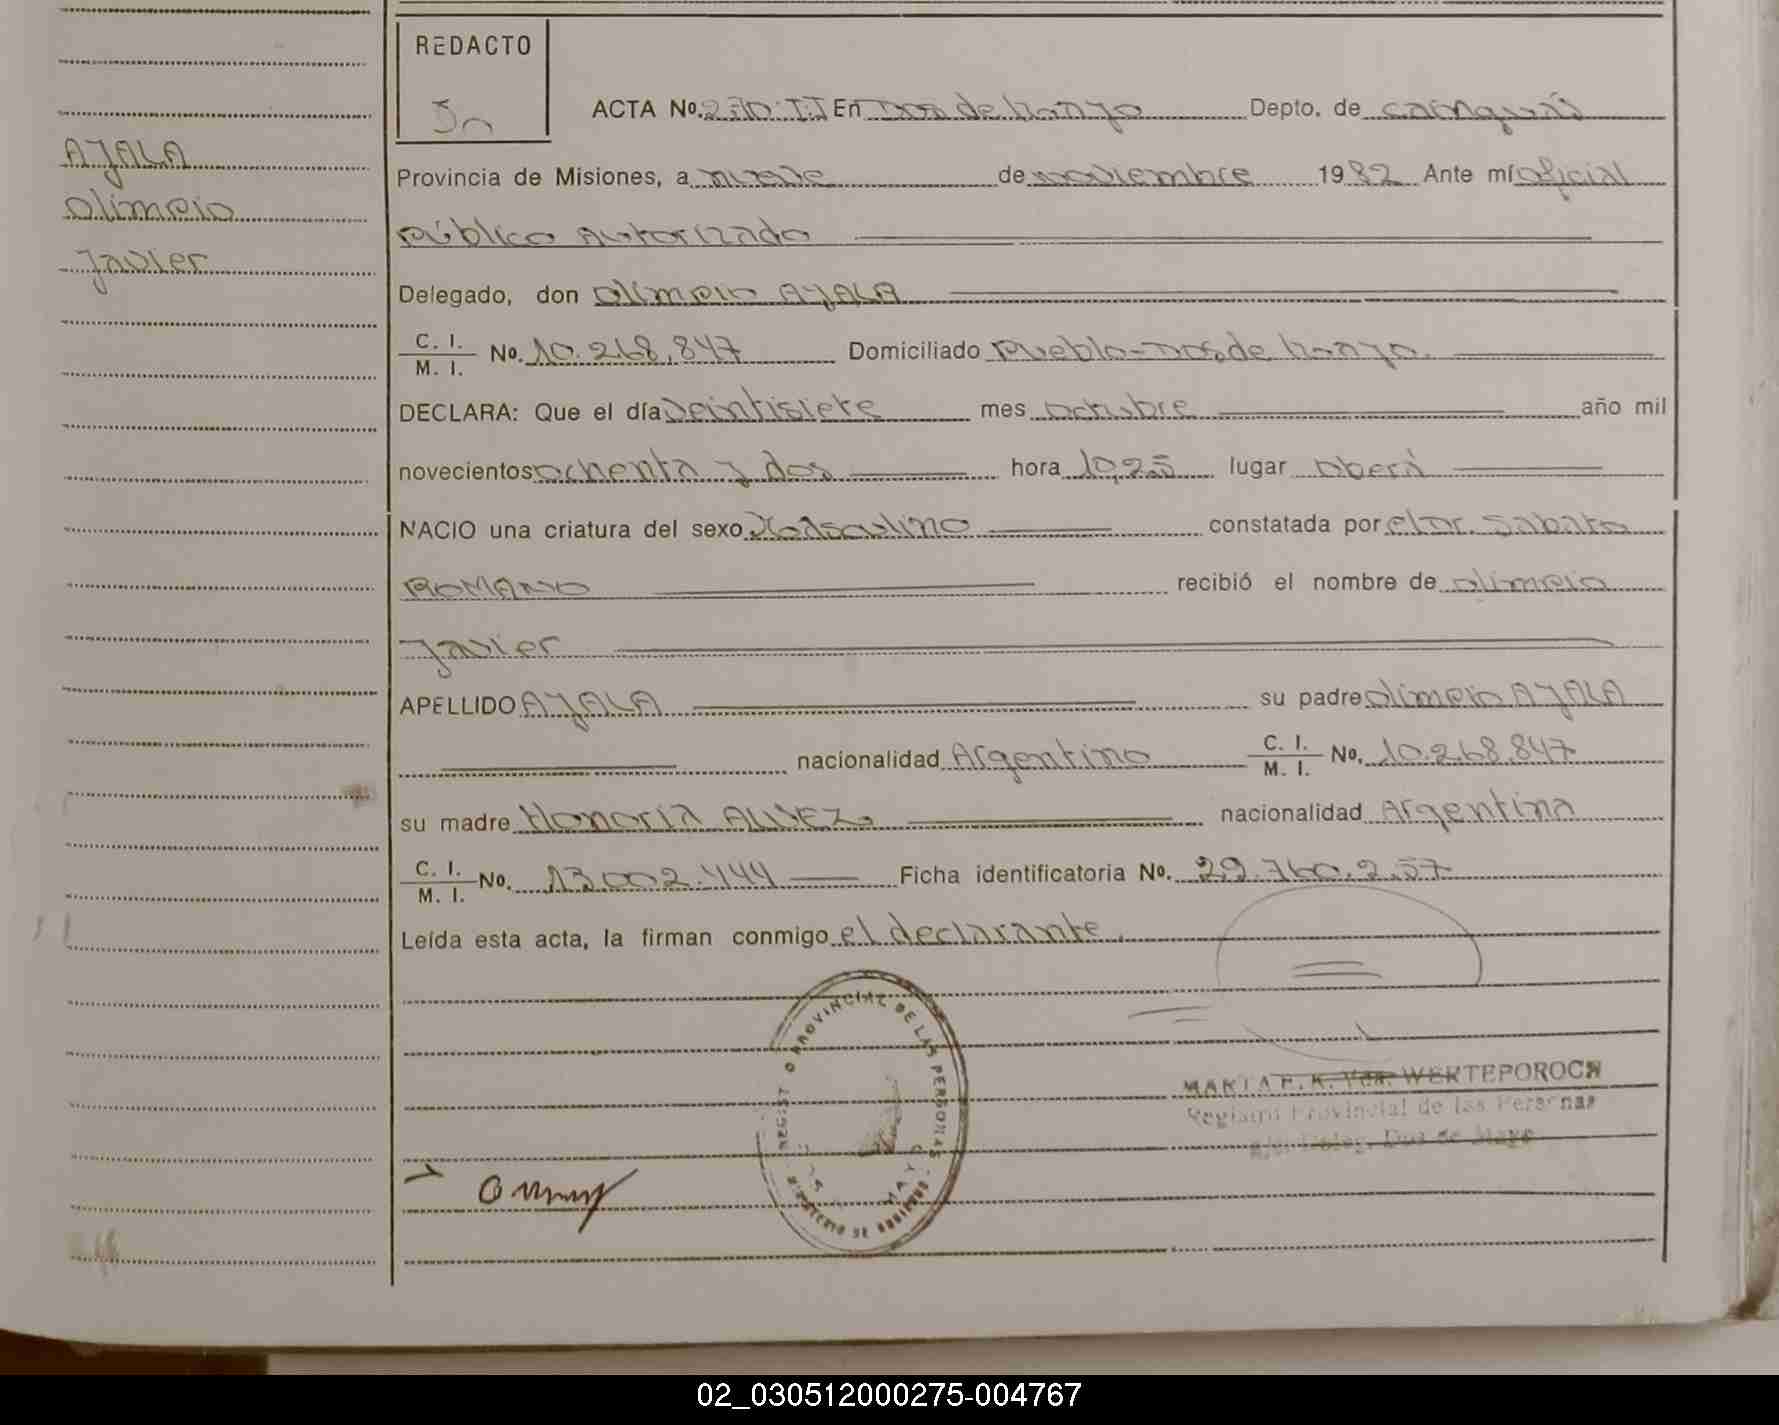 REDACTO
ACTA No. 270. T.I En Dos de Mayo Depto. de Cainguás
AYALA
Provincia de Misiones, a nueve de noviembre 1982 Ante mí oficial
Olimpio
Público Autorizado
Javier
Delegado, don Olimpio AYALA
C. I. / M. I. No. 10.268.847 Domiciliado Pueblo-Dos de Mayo.
DECLARA: Que el día Veintisiete mes octubre año mil
novecientos ochenta y dos hora 10,25 lugar Oberá
NACIO una criatura del sexo Masculino constatada por el Dr. Sabato
ROMANO recibió el nombre de Olimpio
Javier
APELLIDO AYALA su padre Olimpio AYALA
nacionalidad Argentino C. I. / M. I. No. 10.268.847
su madre Honoria ALVEZ. nacionalidad Argentina
C. I. / M. I. No. 13.002.444 Ficha identificatoria No. 29.760.257
Leída esta acta, la firman conmigo el declarante.
REGISTRO PROVINCIAL DE LAS PERSONAS
MARIA E. K. Vda. WERTEPOROCH
Registro Provincial de las Personas
Deleg. Dos de Mayo
MINISTERIO DE GOBIERNO
02_030512000275-004767